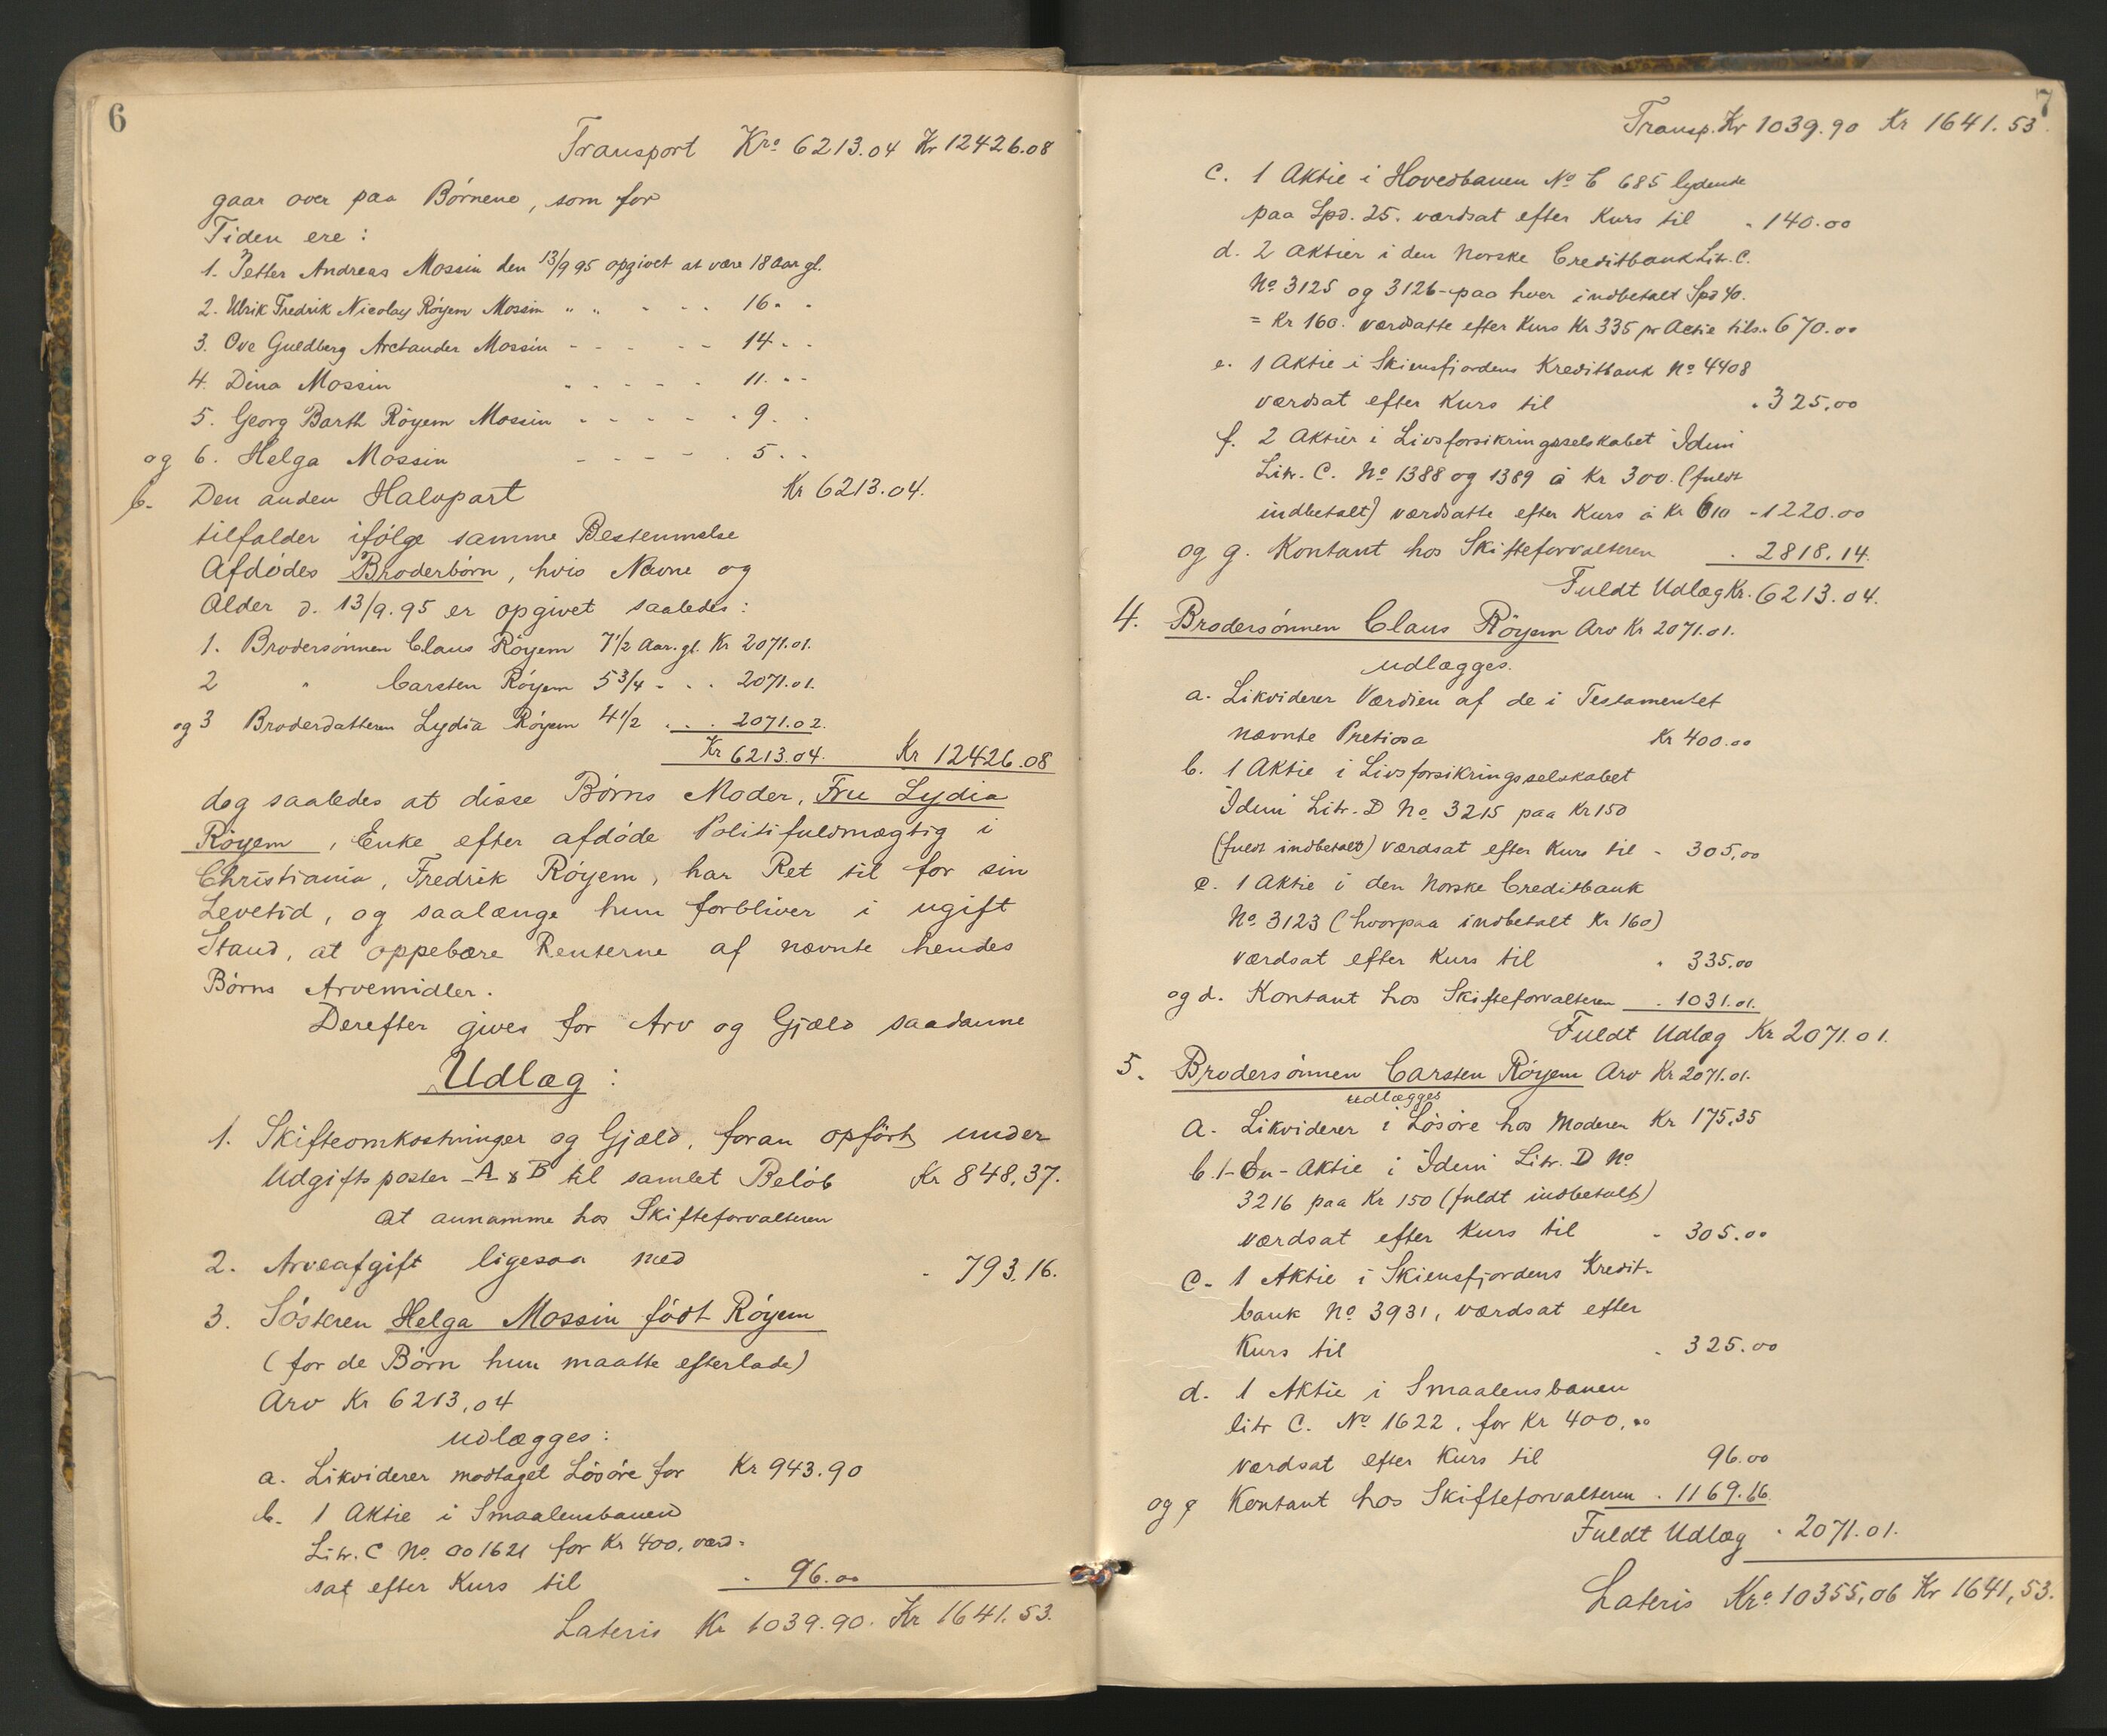 6
Transport Kr. 6213.04 Kr 12426.08
gaar over paa Børnene, som for
Tiden ere:
1. Petter Andreas Mossin den 13/9 95 opgivet at være 18 aar gl.
2. Ulrik Fredrik Nicolay Röyem Mossin " " - - - 16 " "
3. Ove Guldberg Arctander Mossin - - - - - 14 - -
4. Dina Mossin " - - - - 11. - -
5. Georg Barth Röyem Mossin - - - - - 9 - -
og 6. Helga Mossin - - - - . 5 - -
b. Den anden Halvpart Kr 6213.04.
tilfalder ifølge samme Bestemmelse
Afdødes Broderbørn, hvis Navne og
Alder d. 13/9. 95 er opgivet saaledes:
1. Brodersönnen Claus Röyem 7 1/2 Aar. gl. Kr 2071.01.
2 " Carsten Röyem 5 3/4 - . . 2071.01.
og 3 Broderdatteren Lydia Röyem 4 1/2 . . . 2071.02.
Kr 6213.04. Kr 12426.08
dog saaledes at disse Børns Moder, Fru Lydia
Röyem, Enke efter afdøde Politifuldmægtig i
Christiania, Fredrik Röyem, har Ret til for sin
Levetid, og saalænge hun forbliver i ugift
Stand, at oppebære Renterne af nævnte hendes
Børns Arvemidler.
Derefter gives for Arv og Gjæld saadanne
Udlæg:
1. Skifteomkostninger og Gjæld, foran opført under
Udgiftsposter A & B til samlet Beløb Kr 848,37.
at annamme hos Skifteforvalteren
2. Arveafgift ligesaa med - 793,16.
3. Søsteren Helga Mossin født Röyem
(for de Børn hun maatte efterlade)
Arv Kr 6213,04
udlægges:
a. Likviderer modtaget Løsøre for Kr 943.90
b. 1 Aktie i Smaalensbanen
Litr. C No. 001621 for Kr 400, værd-
sat efter Kurs til - 96.00
Lateris Kr 1039.90. Kr 1641.53.
7
Transp. Kr 1039.90 Kr 1641.53.
c. 1 Aktie i Hovedbanen No C 685 lydende
paa Spd. 25. værdsat efter Kurs til - 140.00
d. 2 Aktier i den Norske Creditbank Litr. C.
No 3125 og 3126 - paa hver indbetalt Spd 40.
= Kr 160. værdsatte efter Kurs Kr 335 pr Actie tils. 670.00
e. 1 Aktie i Skiensfjordens Kreditbank No 4408
værdsat efter Kurs til . 325.00
f. 2 Aktier i Livsforsikringsselskabet Iduni
Litr. C. No 1388 og 1389 à Kr 300. (fuldt
indbetalt) værdsatte efter Kurs à Kr 610 - 1220.00
og g. Kontant hos Skifteforvalteren . 2818.14.
Fuldt Udlæg Kr. 6213.04.
4. Brodersønnen Claus Röyem Arv Kr 2071.01.
udlægges.
a. Likviderer Værdien af de i Testamentet
nævnte Pretiosa Kr 400.00
b. 1 Aktie i Livsforsikringsselskabet
Iduni Litr. D No. 3215 paa Kr 150
(fuldt indbetalt) værdsat efter Kurs til - 305,00
c. 1 Aktie i den Norske Creditbank
No 3123 (hvorpaa indbetalt Kr 160)
værdsat efter Kurs til . 335.00
og d. Kontant hos Skifteforvalteren . 1031.01.
Fuldt Udlæg Kr 2071.01.
5. Brodersønnen Carsten Röyem Arv Kr 2071.01.
udlægges
a. Likviderer i Løsøre hos Moderen Kr 175,35
b. 1 - En - Aktie i Iduni Litr. D No
3216 paa Kr 150 (fuldt indbetalt)
værdsat efter Kurs til - 305.00
c. 1 Aktie i Skiensfjordens Kredit-
bank No 3931, værdsat efter
Kurs til . 325.00
d. 1 Aktie i Smaalensbanen
litr C. No 1622, for Kr 400,00
værdsat efter Kurs til 96.00
og e Kontant hos Skifteforvalteren . 1169.66.
Fuldt Udlæg . 2071.01.
Lateris Kr. 10355,06 Kr 1641,53.